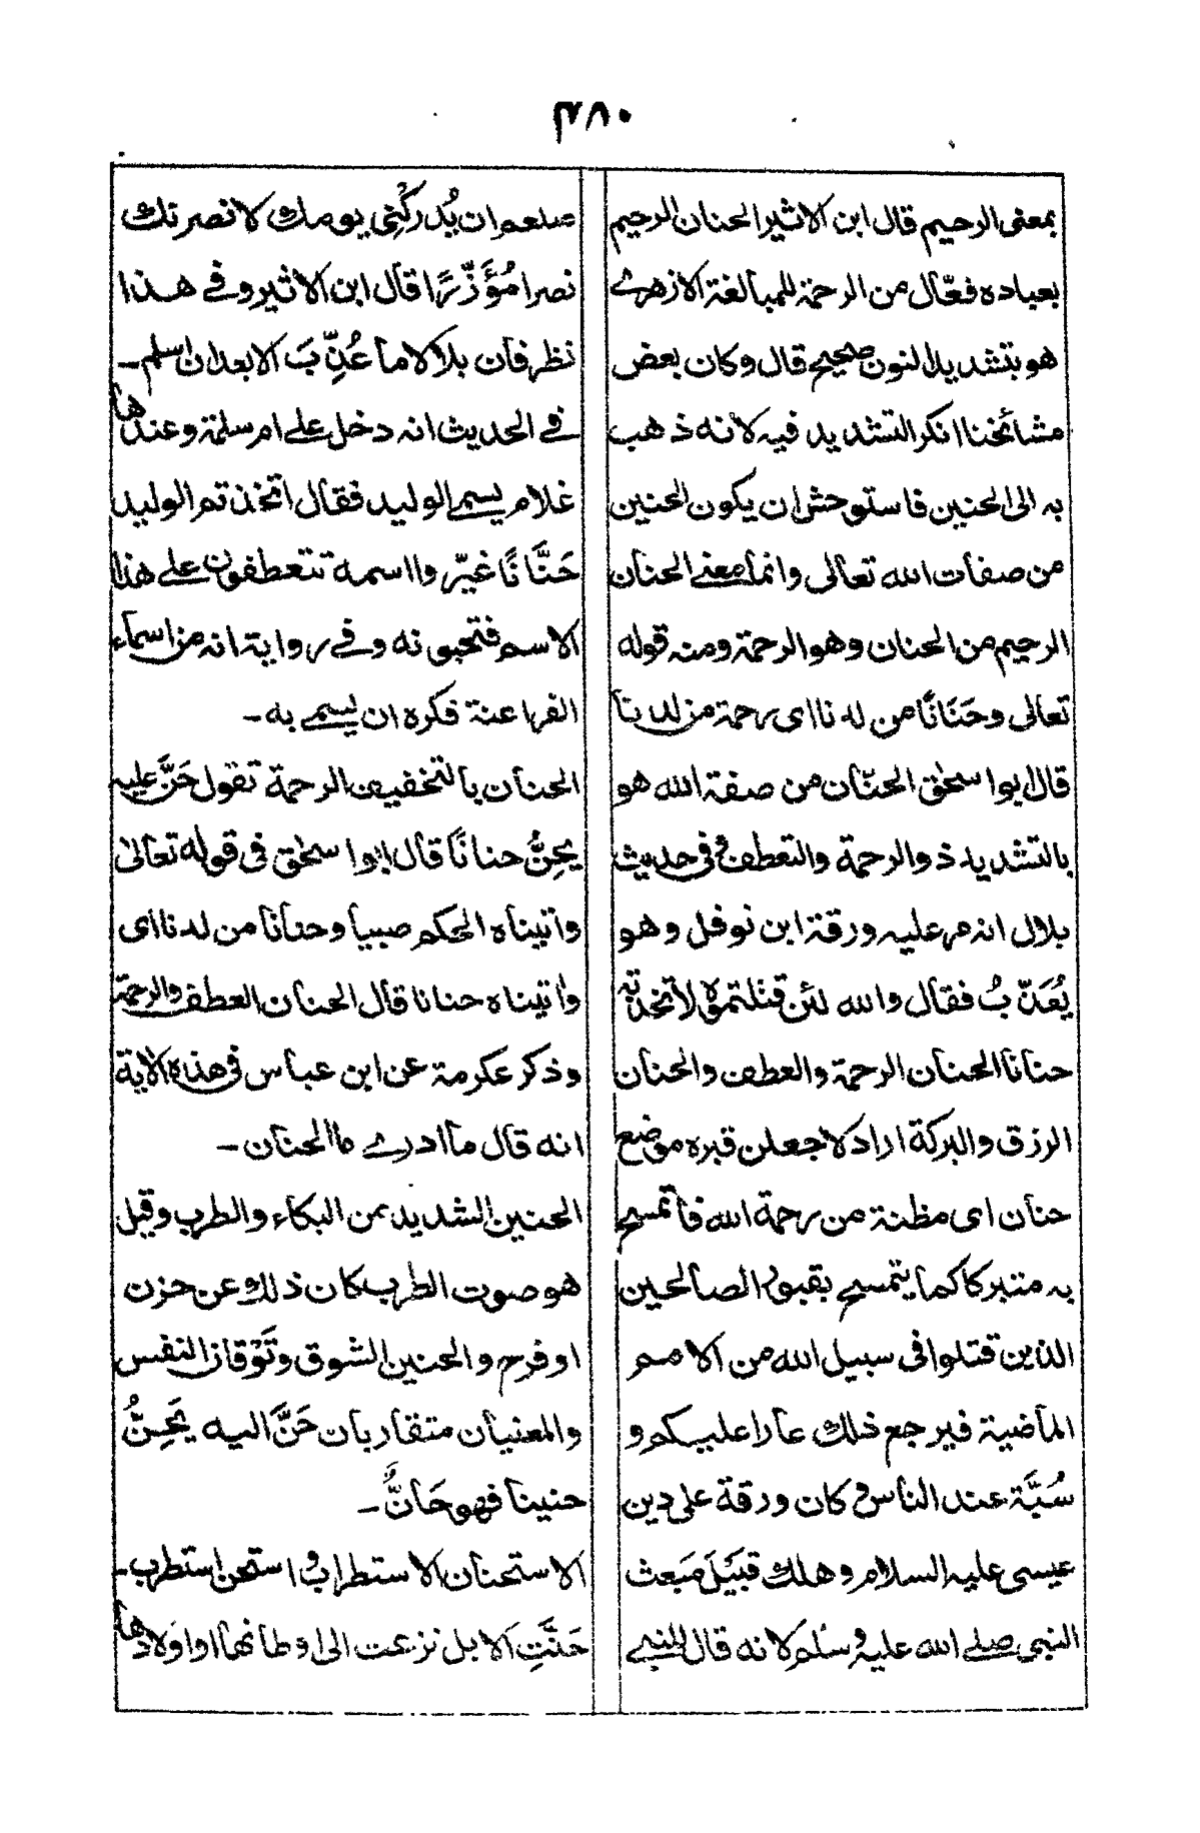 ۳۸۰
بمعنى الرحيم قال ابن الاثير الحنان الرحيم
بعباده فعّال من الرحمة للمبالغة الازهرے
هو بتشديد النون صحيح قال وكان بعض
مشائخنا انكر التشديد فيه لانه ذهب
به الى الحنين فاستوحش ان يكون الحنين
من صفات الله تعالى وانما معنے الحنان
الرحيم من الحنان وهو الرحمة ومنه قوله
تعالى وحَنَانًا من لدنا اى رحمة من لدنا
قال ابو اسحٰق الحنّان من صفة الله هو
بالتشديد ذو الرحمة والتعطف و فى حديث
بلال انه مر عليه ورقة ابن نوفل وهو
يُعَذّبُ فقال والله لئن قتلتموه لاتخذنه
حنانا الحنان الرحمة والعطف والحنان
الرزق والبركة اراد لاجعلن قبره موضع
حنان اى مظنة من رحمة الله فاتمسح
به متبركا كما يتمسح بقبور الصالحين
الذين قتلوا فى سبيل الله من الامم
الماضية فيرجع ذلك عارا عليكم و
سُبَّة عند الناس و كان ورقة على دين
عيسى عليه السلام وهلك قبَيَلَ مَبَعث
النبى صلے الله عليه و سلم لانه قال للنبے
صلعم ان يُدركْنِى يومك لانصرنك
نصرا مُؤَزَّرًا قال ابن الاثير وفے هذا
نظر فان بلالا ما عُذِّبَ الا بعد ان اسلم ـ
فے الحديث انه دخل علے ام سلمة وعندها
غلام يسمے الوليد فقال اتخذتم الوليد
حَنَّانًا غيّروا اسمه تتعطفون علے هذا
الاسم فتحبونه وفے رواية انه من اسماء
الفراعنة فكره ان يسمے به ـ
الحنان بالتخفيف الرحمة تقول حَنَّ عليه
يحِنُّ حنانًا قال ابو اسحٰق فى قوله تعالىٰ
واتيناه الحكم صبيا وحنانا من لدنا اى
واتيناه حنانا قال الحنان العطف والرحمة
وذكر عكرمة عن ابن عباس فى هذه الاية
انه قال ما ادرے ما الحنان ـ
الحنين الشديد من البكاء والطرب وقيل
هو صوت الطرب كان ذلك عن حزن
او فرح والحنين الشوق وتَوْقان النفس
والمعنيان متقاربان حَنَّ اليه يَحِنُّ
حنينا فهو حَانٌّ ـ
الاستحنان الاستطراب و استحن استطرب ـ
حَنَّتِ الابل نزعت الى اوطانها او اولادها